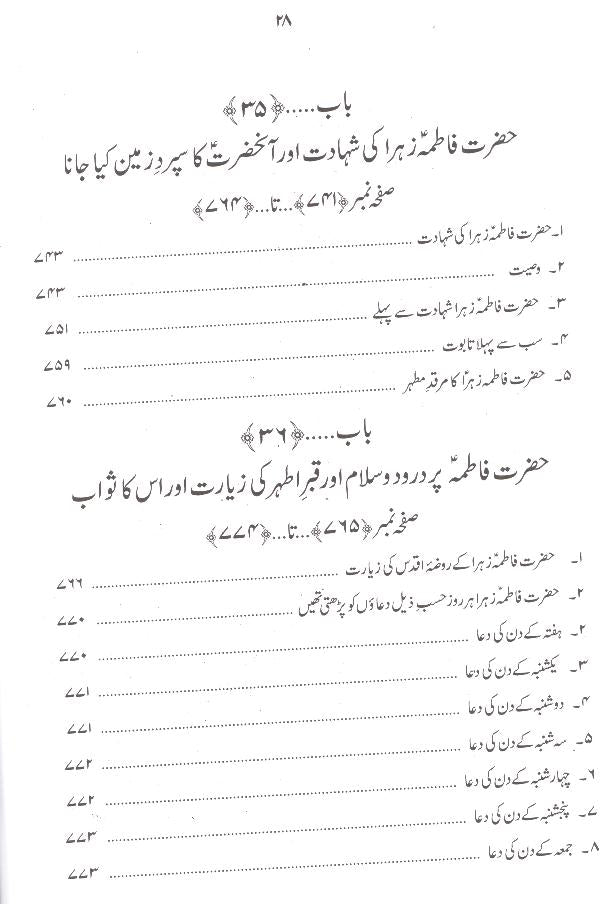 ۲۸
باب.....﴿۳۵﴾
حضرت فاطمہؑ زہرا کی شہادت اور آنحضرتؑ کا سپردِ زمین کیا جانا
صفحہ نمبر ﴿۷۴۱﴾...تا...﴿۷۶۴﴾
۱۔ حضرت فاطمہؑ زہرا کی شہادت ........ ۷۴۳
۲۔ وصیت ........ ۷۴۳
۳۔ حضرت فاطمہؑ زہرا شہادت سے پہلے ........ ۷۵۱
۴۔ سب سے پہلا تابوت ........ ۷۵۹
۵۔ حضرت فاطمہ زہراؑ کا مرقدِ مطہر ........ ۷۶۰
باب.....﴿۳۶﴾
حضرت فاطمہؑ پر درود و سلام اور قبرِ اطہر کی زیارت اور اس کا ثواب
صفحہ نمبر ﴿۷۶۵﴾...تا...﴿۷۷۴﴾
۱۔ حضرت فاطمہؑ زہرا کے روضۂ اقدس کی زیارت ........ ۷۶۶
۲۔ حضرت فاطمہؑ زہرا ہر روز حسبِ ذیل دعاؤں کو پڑھتی تھیں ........ ۷۷۰
۲۔ ہفتہ کے دن کی دعا ........ ۷۷۰
۳۔ یکشنبہ کے دن کی دعا ........ ۷۷۱
۴۔ دوشنبہ کے دن کی دعا ........ ۷۷۱
۵۔ سہ شنبہ کے دن کی دعا ........ ۷۷۲
۶۔ چہارشنبہ کے دن کی دعا ........ ۷۷۲
۷۔ پنجشنبہ کے دن کی دعا ........ ۷۷۳
۸۔ جمعہ کے دن کی دعا ........ ۷۷۳